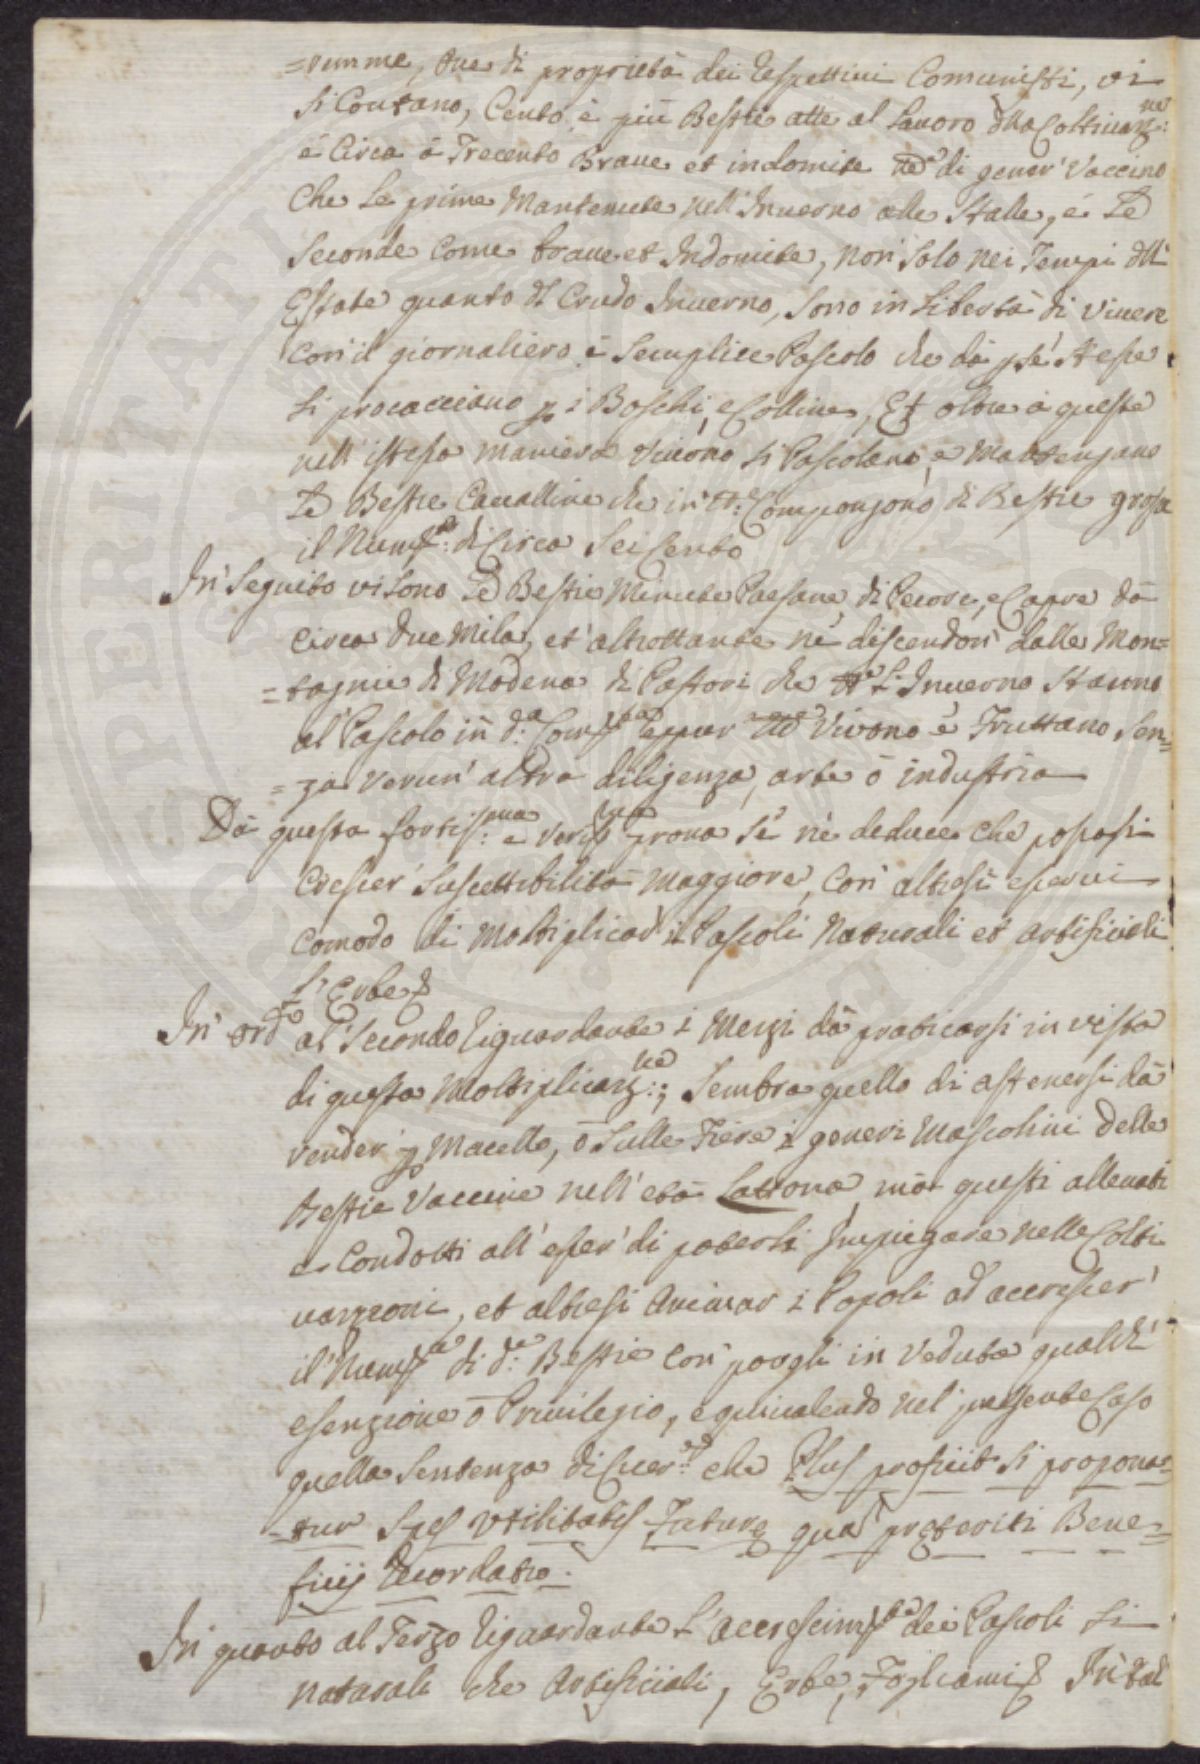 =remme, due di proprietà dei respettivi Comunisti, vi
si Contano, Cento, è più Bestie atte al Lavoro dlla Coltivaz:ne
é Circa à Trecento Brave et indomite di gener' Vaccino
Che Le prime Mantenute nell'Inverno alle Stalle, é Le
Seconde Come brave et Indomite, non Solo nei Tempi dll'
Estate quanto dl Crudo Inverno, Sono in Libertà di Vivere
Con' il giornaliero è Semplice Pascolo che dà p sé Stesse
Si procacciano p i Boschi, e Colline, Et oltre à queste
nell'istessa maniera Vivono Si Pascolano, e Mantengano
Le Bestie Cavalline che in Compongono di Bestie grosse
il Num:ro di Circa Sei Cento
In' Seguito vi Sono Le Bestie Minute Paesane, di Pecore, e Capre dà
Circa due Mila, et altrettante né discendon' dalle Mon=
=tagnie di Modena di Pastori che L'Inverno Stanno
al' Pascolo in d:a Vivono é Fruttano Sen=
=za Verun' altra diligenza, arte ò industria
Dà questa fortis:ma e veris:ma prova Sé né deduce che possasi
Crescer' Suscettibilità Maggiore, Con' altresì esservi
Comodo di Moltiplicar' i Pascoli Naturali et artificiali
L'Erbe &
In' ord:e al' Secondo riguardante i Mezzi dà praticarsi in vista
di questa Moltiplicaz:ne; Sembra quello di astenersi dà
vender' p Macello, ò Sulle Fiere i generi Mascolini delle
Bestie Vaccine nell'età Lattona, mà questi allevati
e Condotti all'esser' di poterli Impiegare nelle Colti
vazzioni, et altresi Animar i Popoli ad accrescer'
il' Num:ro di d:e Bestie Con' porgli in Veduta qualch'
esenzione ò Privilegio, equivalendo nel' presente Caso
quella Sentenza di che Plus proficit si propona=
=tur Spes Utilitatis Future qua preteriti Bene=
ficij recordatio.
In' quanto al Terzo riguardante L'accrescim:to dei Pascoli Si
naturali che Artificiali, Erbe, Fogliami & In' tal